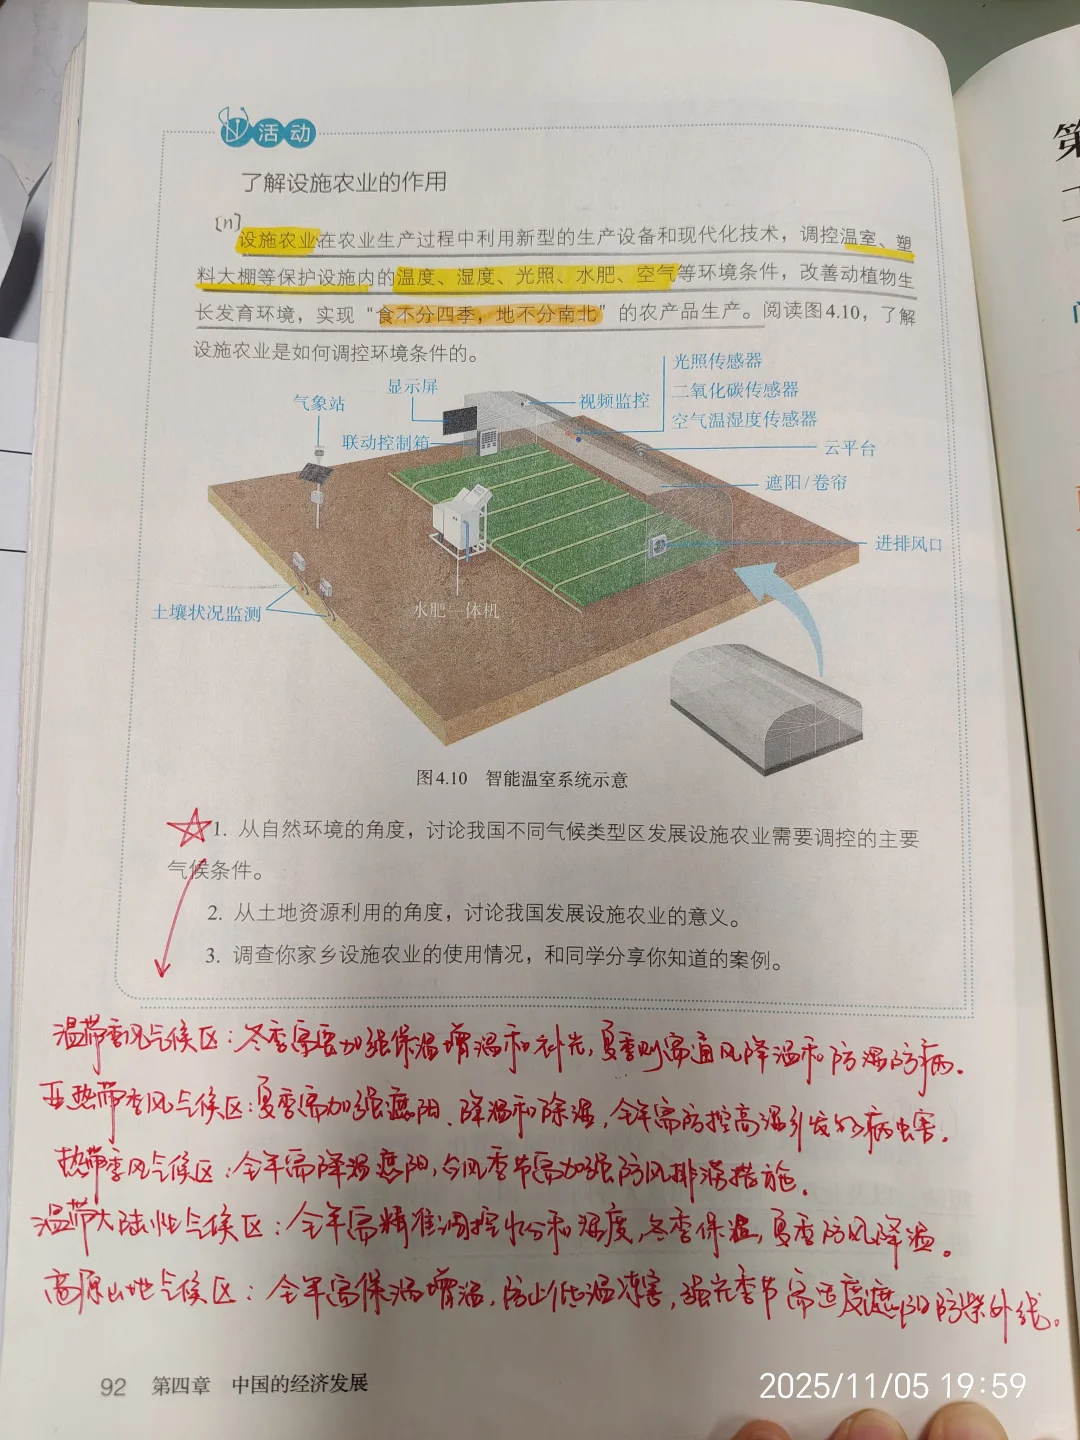 活动
了解设施农业的作用
[n]
设施农业在农业生产过程中利用新型的生产设备和现代化技术，调控温室、塑
料大棚等保护设施内的温度、湿度、光照、水肥、空气等环境条件，改善动植物生
长发育环境，实现“食不分四季，地不分南北”的农产品生产。阅读图4.10，了解
设施农业是如何调控环境条件的。
光照传感器
显示屏
二氧化碳传感器
气象站
视频监控
空气温湿度传感器
联动控制箱
云平台
遮阳/卷帘
进排风口
土壤状况监测
水肥一体机
图4.10 智能温室系统示意
1. 从自然环境的角度，讨论我国不同气候类型区发展设施农业需要调控的主要
气候条件。
2. 从土地资源利用的角度，讨论我国发展设施农业的意义。
3. 调查你家乡设施农业的使用情况，和同学分享你知道的案例。
温带季风气候区：冬季需要加强保温增温和补光，夏季则需通风降温和防湿防病.
亚热带季风气候区：夏季需加强遮阳、降温和除湿，全年需防控高湿引发的病虫害.
热带季风气候区：全年需降温遮阳，台风季节需加强防风排涝措施.
温带大陆性气候区：全年需精准调控水分和湿度，冬季保温，夏季防风降温。
高原山地气候区：全年需保温增温，防止低温冻害，强光季节需适度遮阳防紫外线。
92 第四章 中国的经济发展
2025/11/05 19:59
第